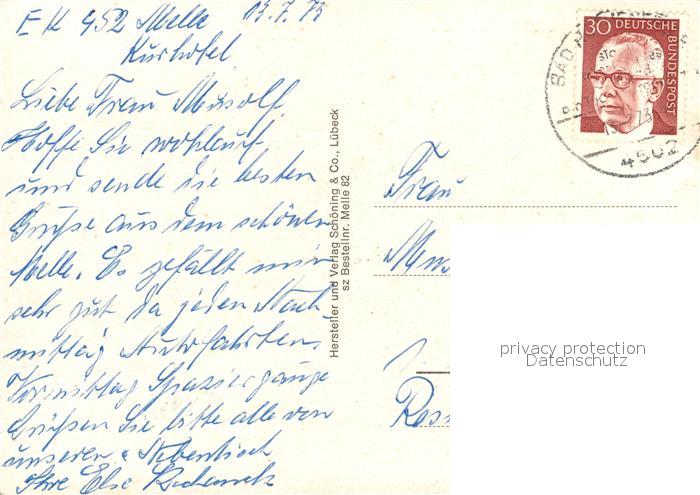 Melle 13.7.73
Kurhotel
Liebe Frau Musolf.
Hoffe Sie wohlauf,
und sende die besten
Grüße aus dem schönen
Melle. Es gefällt mir
sehr gut da jeden Nach
mittag Autofahrten,
Vormittag Spaziergänge
Grüßen Sie bitte alle von
unseren
Ihre Else
Hersteller und Verlag Schöning & Co., Lübeck
sz Bestellnr. Melle 82
30 DEUTSCHE
BUNDESPOST
BAD
4502
Frau
Mus
privacy protection
Datenschutz